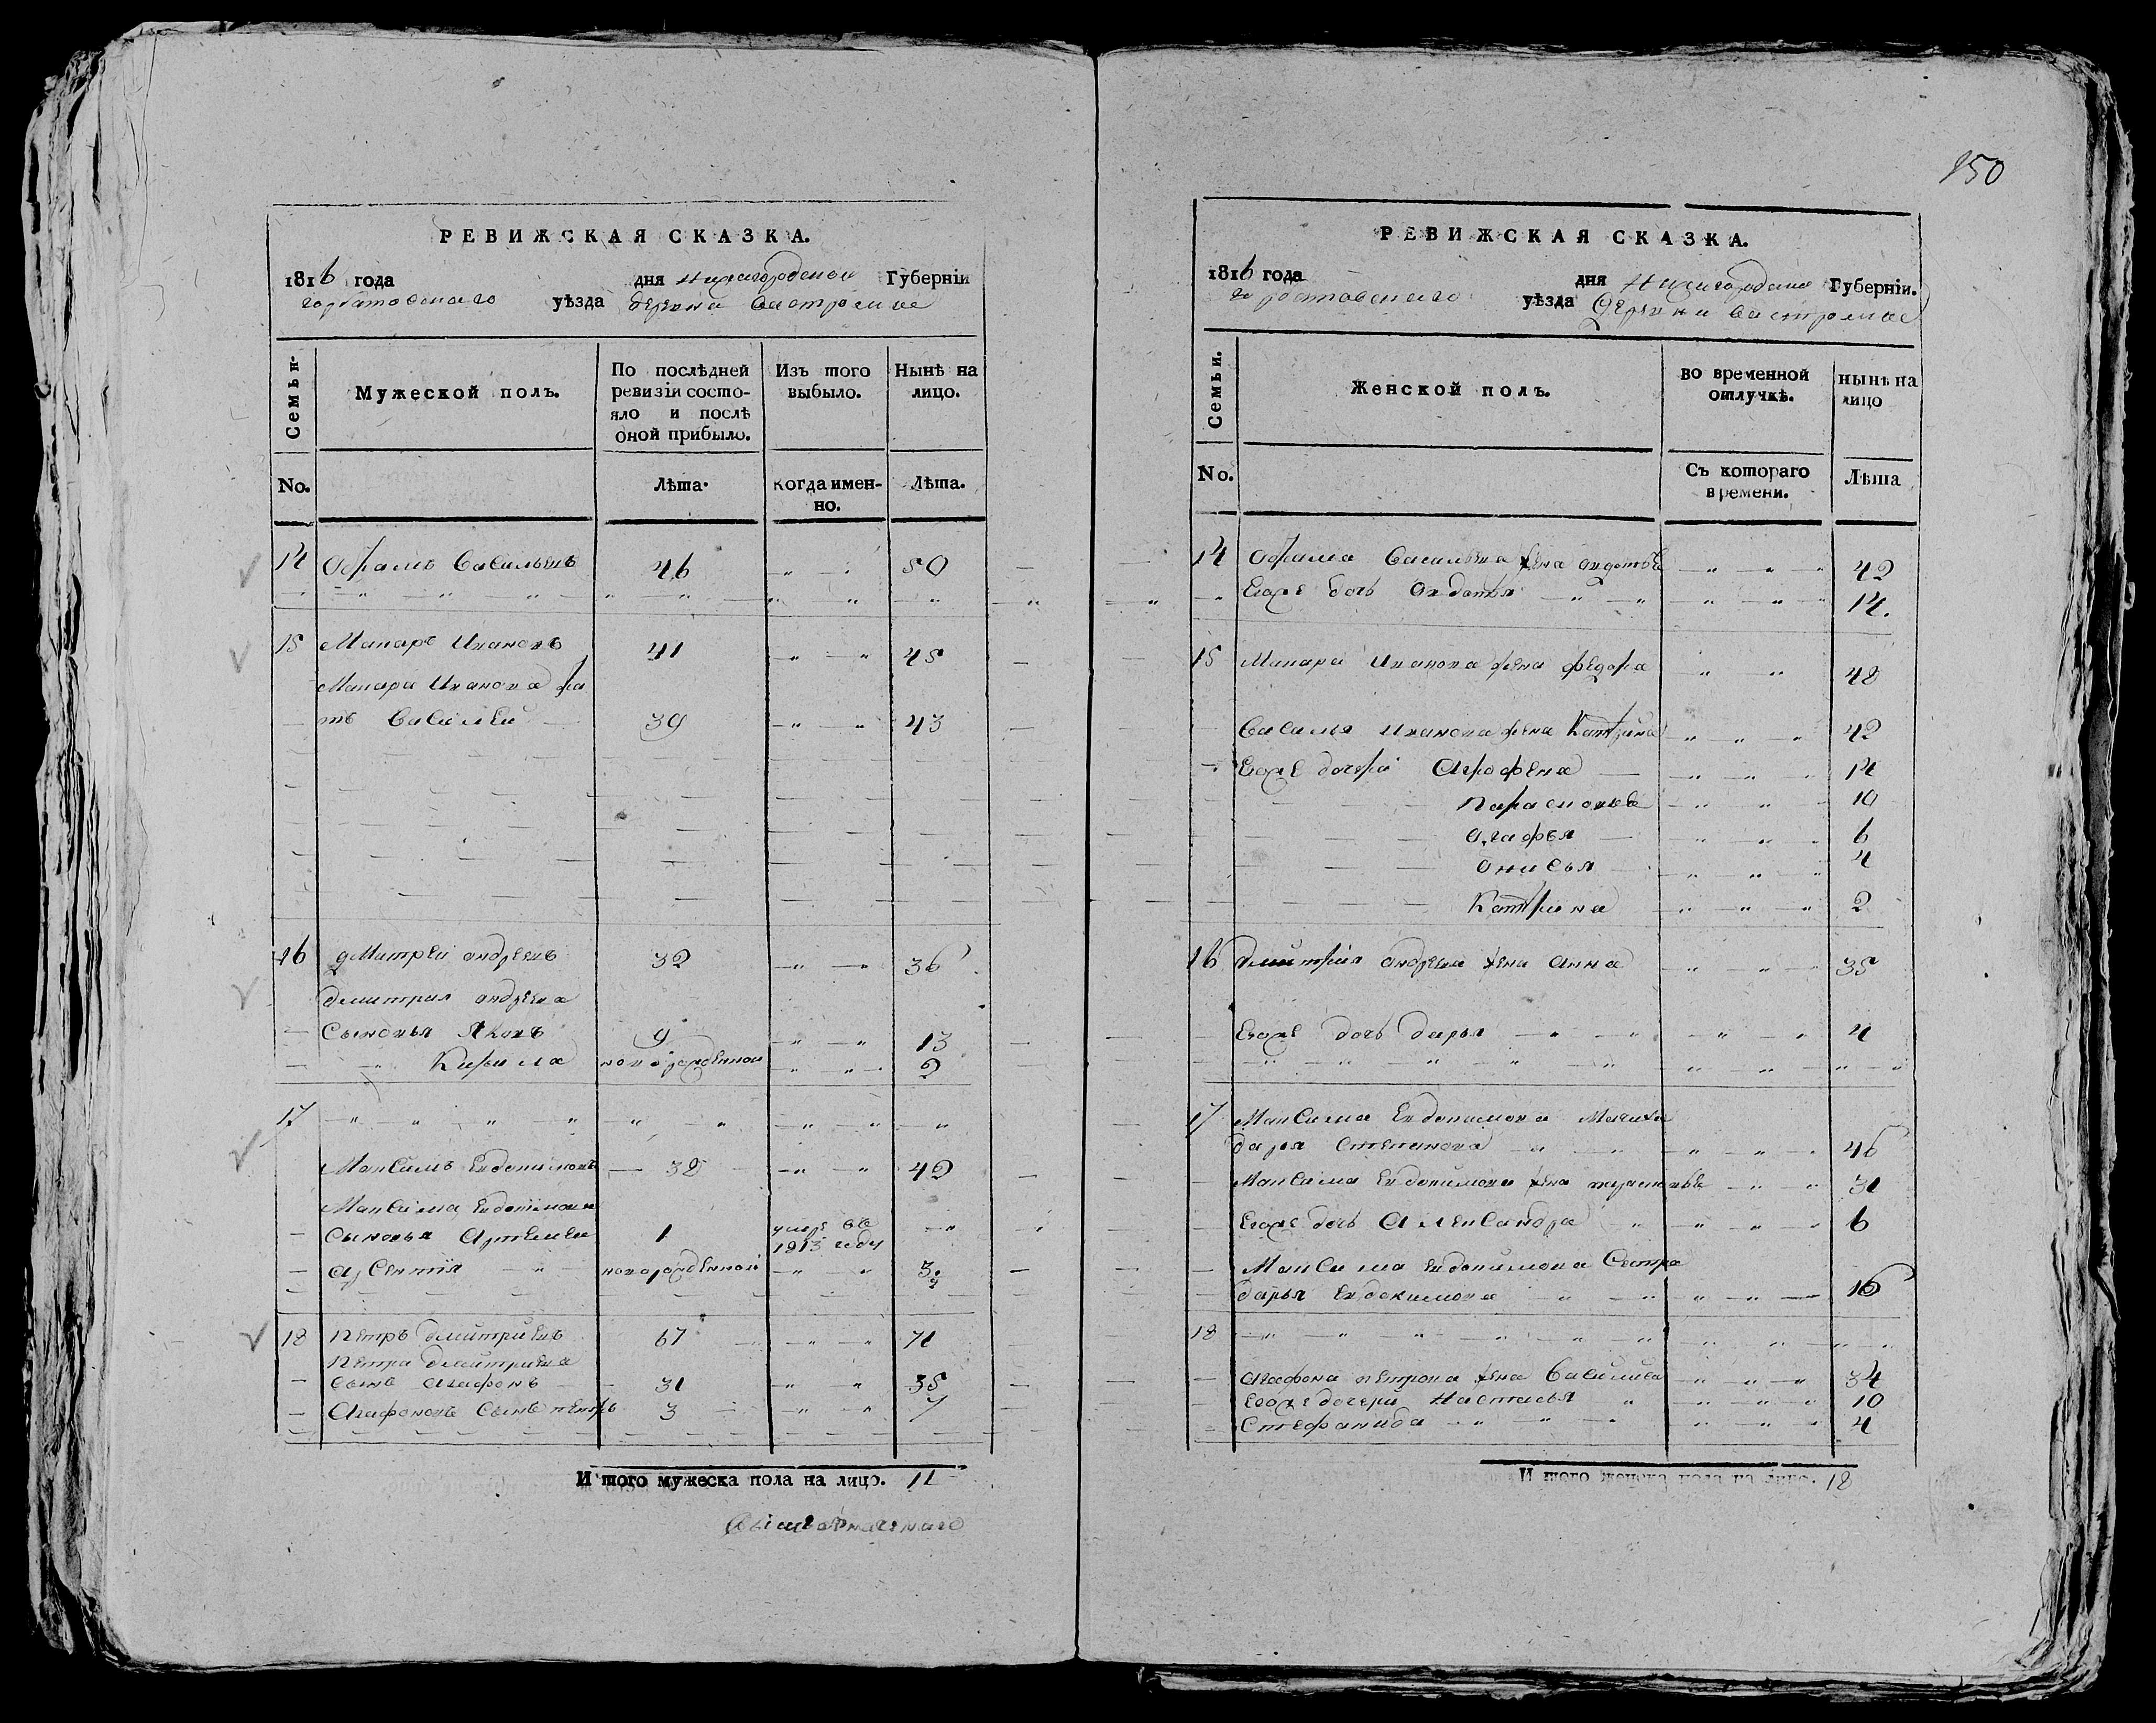 РЕВИЖСКАЯ СКАЗКА.
1816 года дня Нижегородской Губерніи
горбатовскаго уѣзда деревни
Семьи
Мужеской полъ.
По послѣдней ревизіи состояло и послѣ оной прибыло.
Изъ того выбыло.
Нынѣ на лицо.
No.
Лѣта.
Когда именно.
Лѣта.
14 Офрамъ Васильевъ 46 50
15 Макаръ Ивановъ 41 45
Макара Иванова бра
тъ Василей 39 43
16 дмитрей андреевъ 32 36
дмитрия андреева
Сыновья Яковъ 9 13
Кирила новорожденной 2
17
Максимъ Евдокимовъ 38 42
Максима Евдокимова
Сыновья Артемей 1 умре въ 1813 году
Арсентія новорожденной 3
18 Петръ Дмитриевъ 67 71
Петра дмитриева
Сынъ Агафонъ 31 35
Агафоновъ Сынъ петръ 3 7
И того мужеска пола на лицо. 11
150
РЕВИЖСКАЯ СКАЗКА.
1816 года дня Нижегородской Губерніи.
горбатовскаго уѣзда Деревни
Семьи.
Женской полъ.
во временной отлучкѣ.
нынѣ на лицо
No.
Съ котораго времени.
Лѣта
14 Офрама Васильева жена авдотья 42
Егоже дочь Авдотья 14.
15 Макара Иванова жена федора 48
Василья Иванова жена Катрина 42
Егоже дочери Агрофена 14
Парасковья 10
Агафья 6
Онисья 4
Катрина 2
16 Дмитрия андреева жена Анна 35
Егоже дочь дарья 4
17 Максима Евдокимова Мачиха
дарья Степанова 46
Максима Евдокимова жена парасковья 31
Егоже дочь Александра 6
Максима Евдокимова Сестра
дарья Евдокимова 16
18
Агафона петрова жена Василиса 34
Егоже дочери Настасья 10
Стефанида 4
И того женска пола на лицо. 18